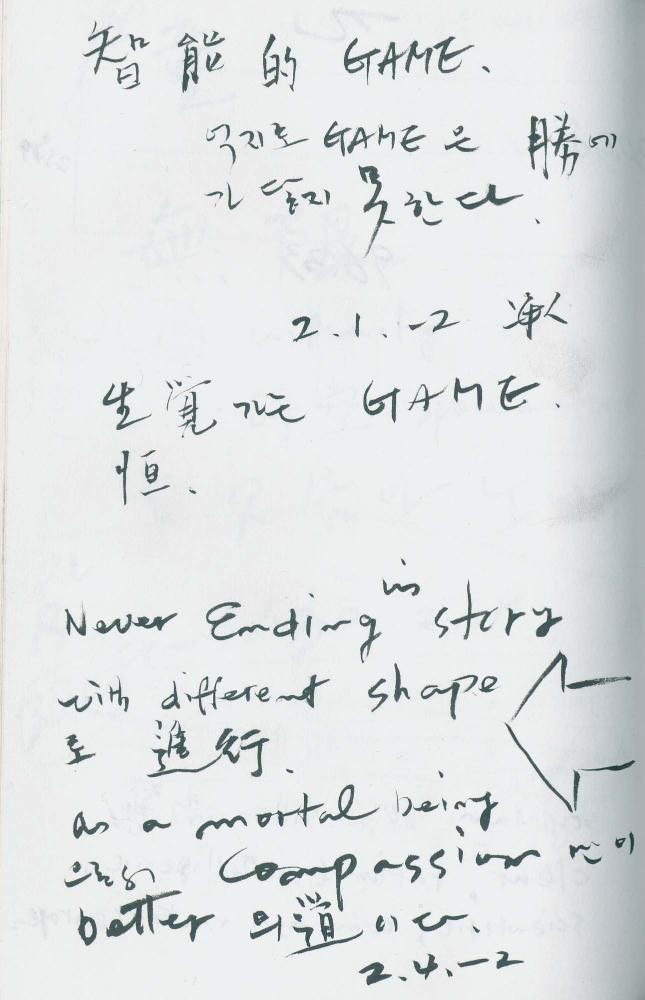 智能的 GAME.
억지로 GAME은 勝에
가 닿지 못한다.
2.1.-2
生覺 가는 GAME.
恒.
Never Ending is story
with different shape
로 進行.
as a mortal being
으로서 compassion 만이
better 의 道이다.
2.4.-2